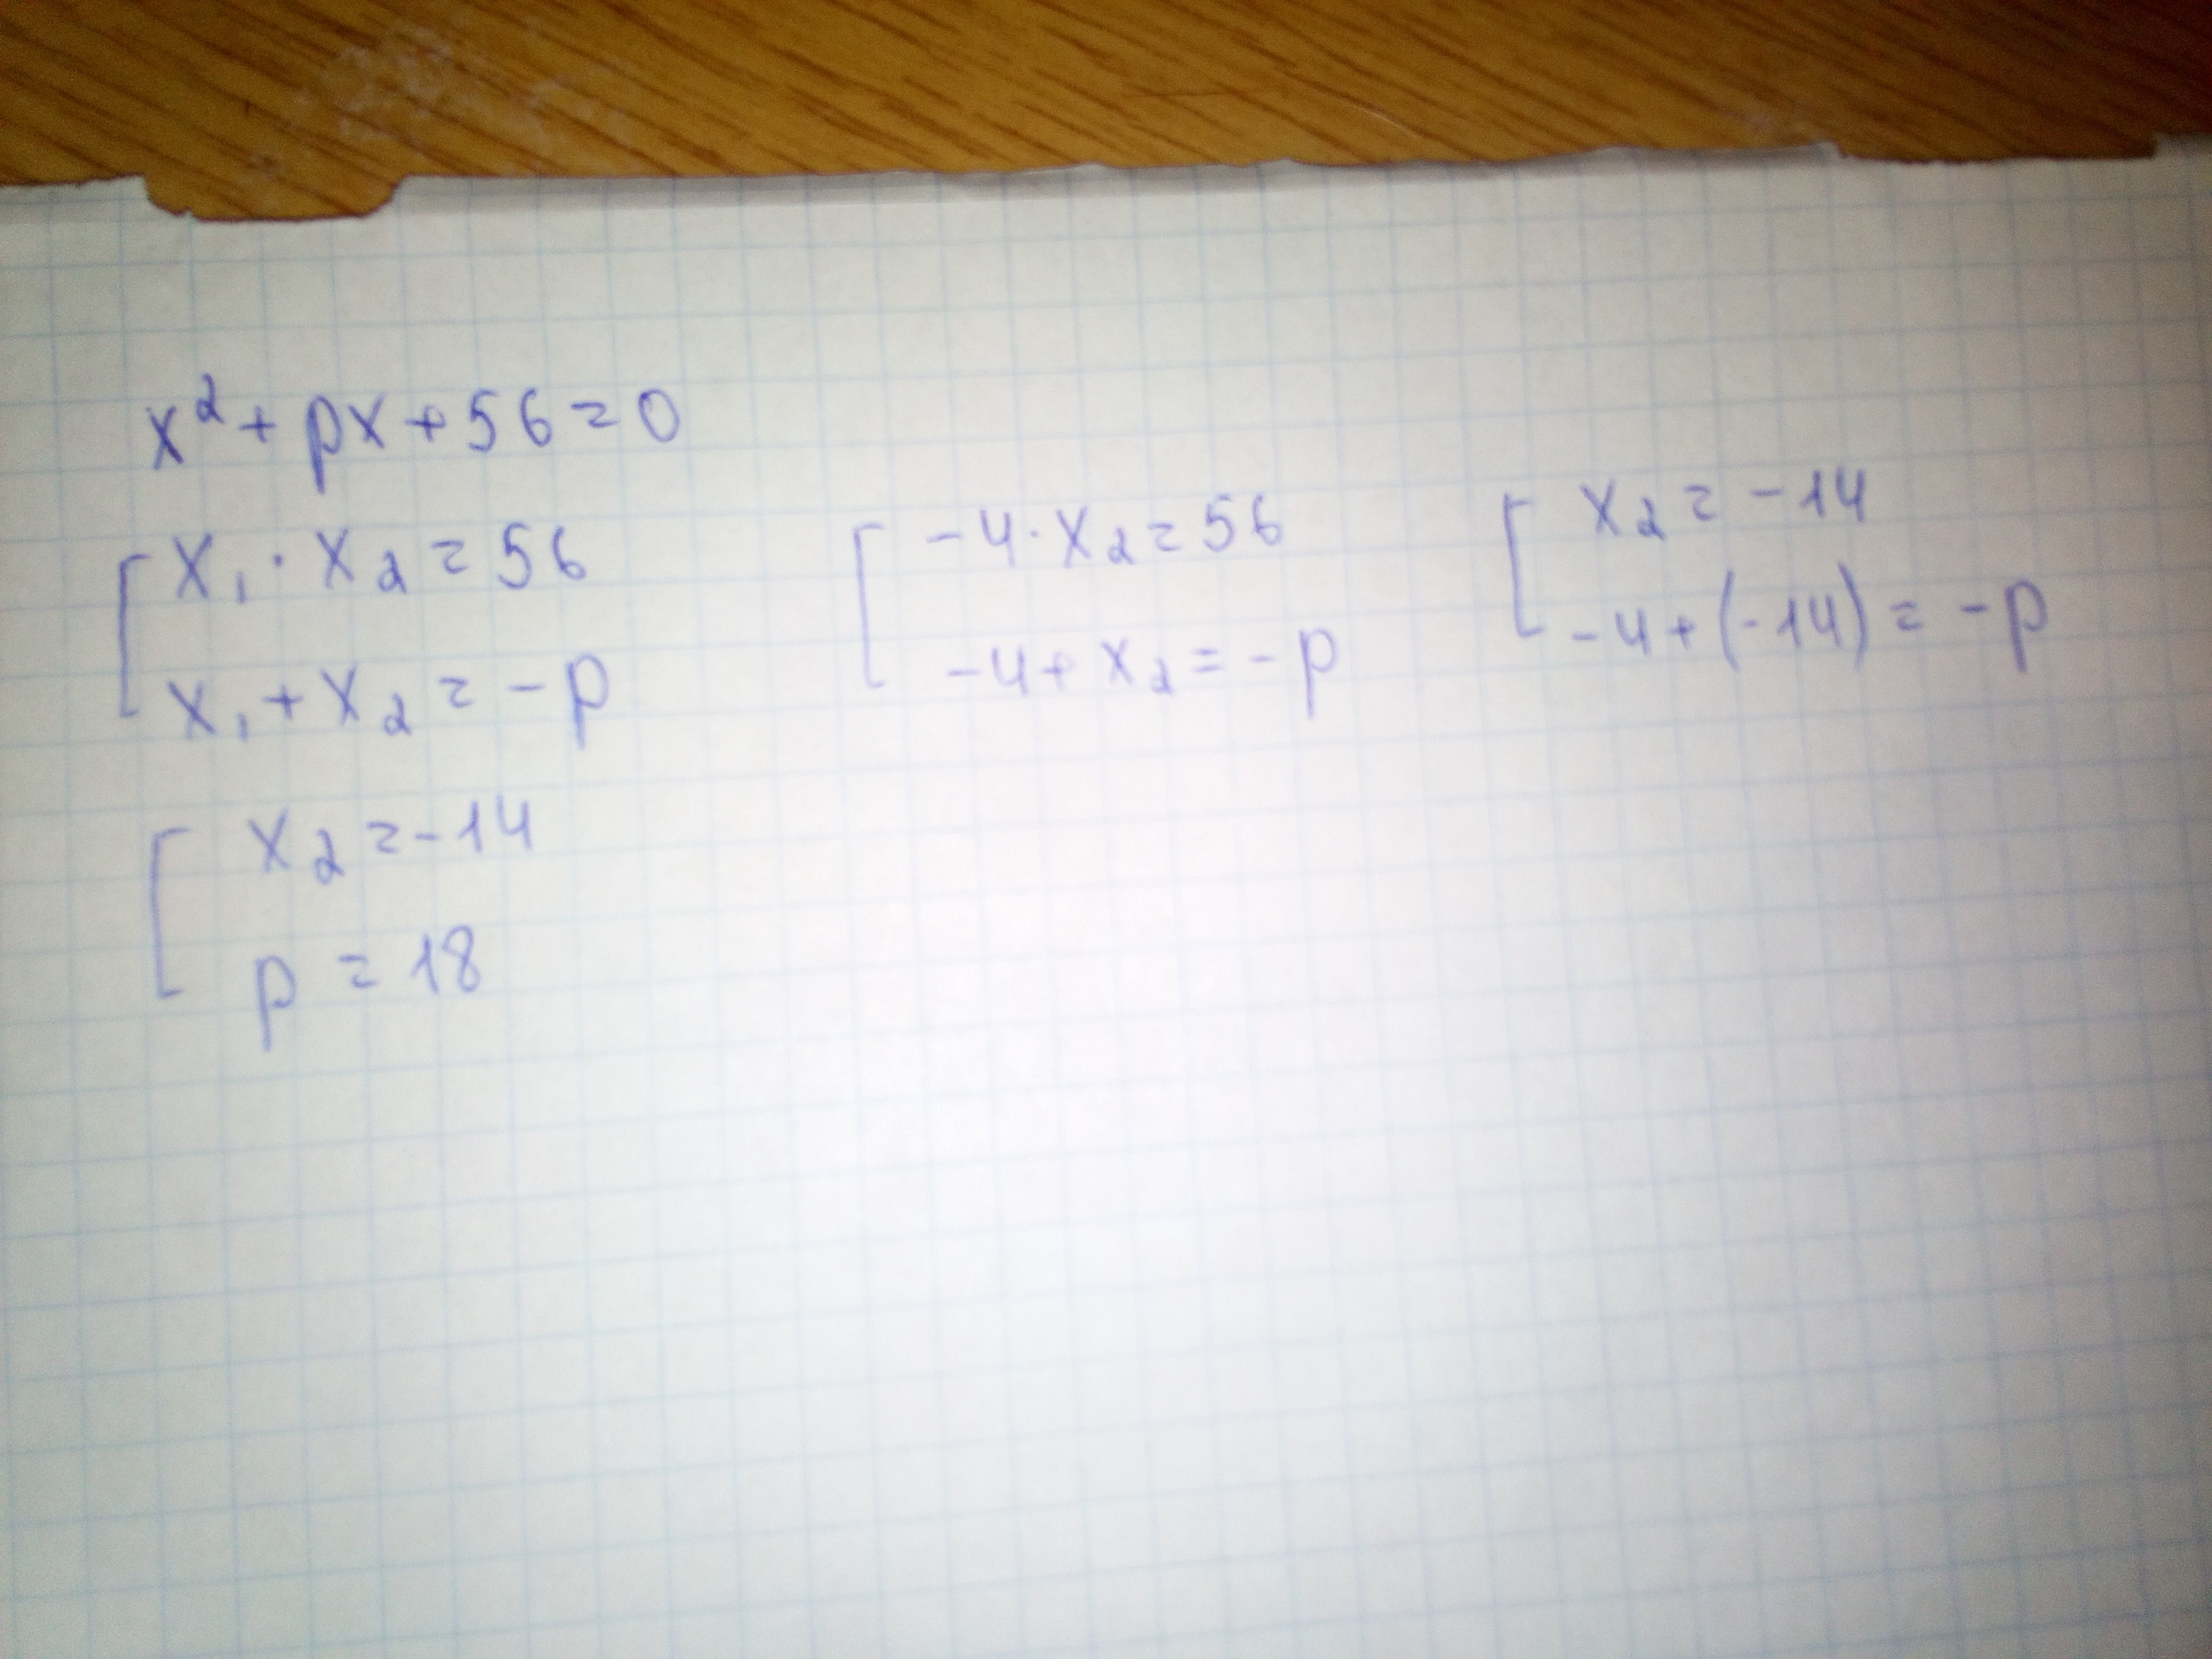 x² + px + 56 = 0
[ x₁ · x₂ = 56
x₁ + x₂ = -p
[ -4 · x₂ = 56
-4 + x₂ = -p
[ x₂ = -14
-4 + (-14) = -p
[ x₂ = -14
p = 18